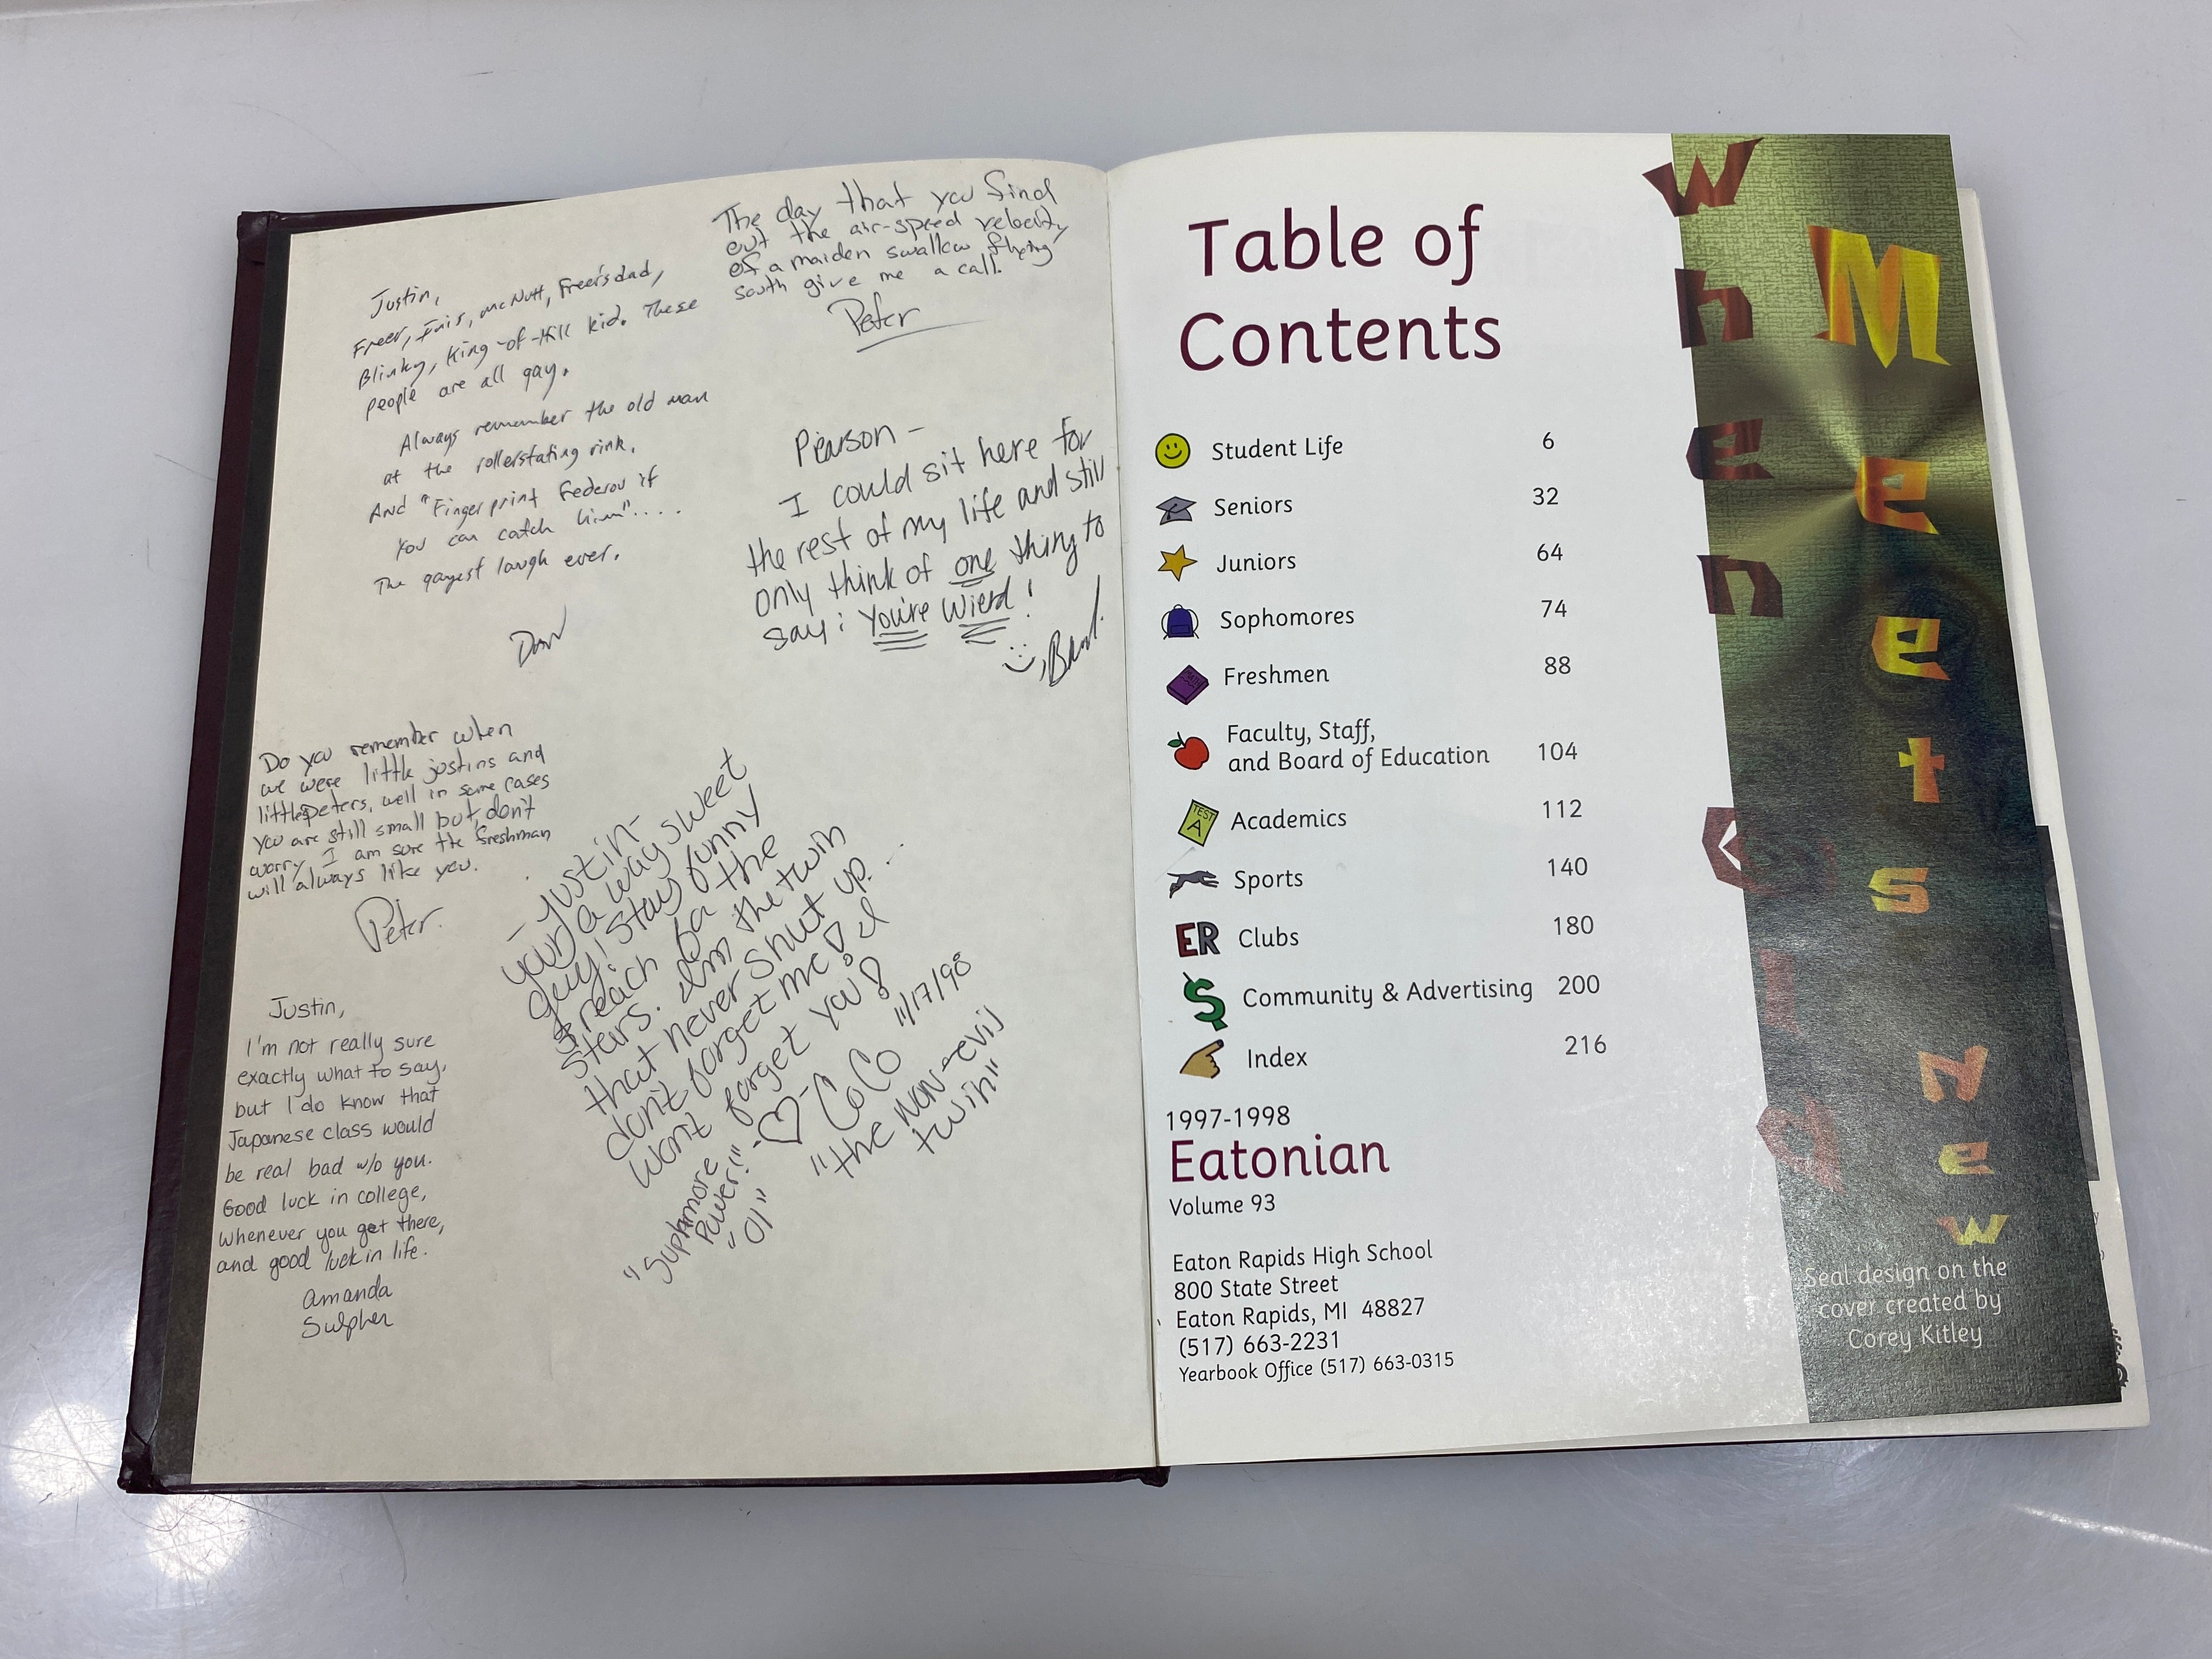 Justin,
Freer, Inis, McNutt, Freer's dad,
Blinky, King-of-Hill kid. These
people are all gay.
Always remember the old man
at the rollerstating rink.
And "Fingerprint Federov if
You can catch him"....
The gayest laugh ever.
Dan
The day that you find
out the air-speed velocity
of a maiden swallow flying
south give me a call.
Peter
Pearson -
I could sit here for
the rest of my life and still
only think of one thing to
say: You're Wierd!
Do you remember when
we were little justins and
little peters, well in some cases
you are still small but, don't
worry I am sure the freshman
will always like you.
Peter.
- Justin -
your a way sweet
guy! Stay funny
& reach for the
stars. I'm the twin
that never shut up...
don't forget me! I
wont forget you!
- CoCo 11/17/98
"the non-evil
twin"
"Suphmore
Power!"
"01"
Justin,
I'm not really sure
exactly what to say,
but I do know that
Japanese class would
be real bad w/o you.
Good luck in college,
whenever you get there,
and good luck in life.
Amanda
Sulpher
Table of
Contents
Student Life 6
Seniors 32
Juniors 64
Sophomores 74
Freshmen 88
Faculty, Staff,
and Board of Education 104
TEST
A
Academics 112
Sports 140
ER Clubs 180
$ Community & Advertising 200
Index 216
1997-1998
Eatonian
Volume 93
Eaton Rapids High School
800 State Street
Eaton Rapids, MI 48827
(517) 663-2231
Yearbook Office (517) 663-0315
when
Old
Meets
New
Seal design on the
cover created by
Corey Kitley